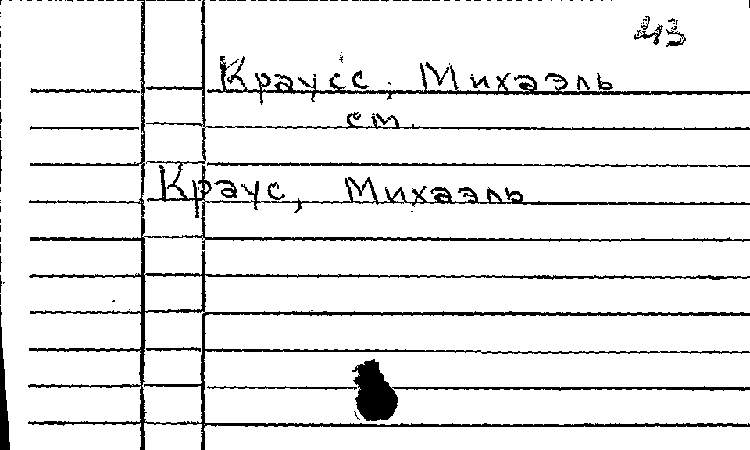 из
Краусс, Михаэль
см.
Краус, Михаэль